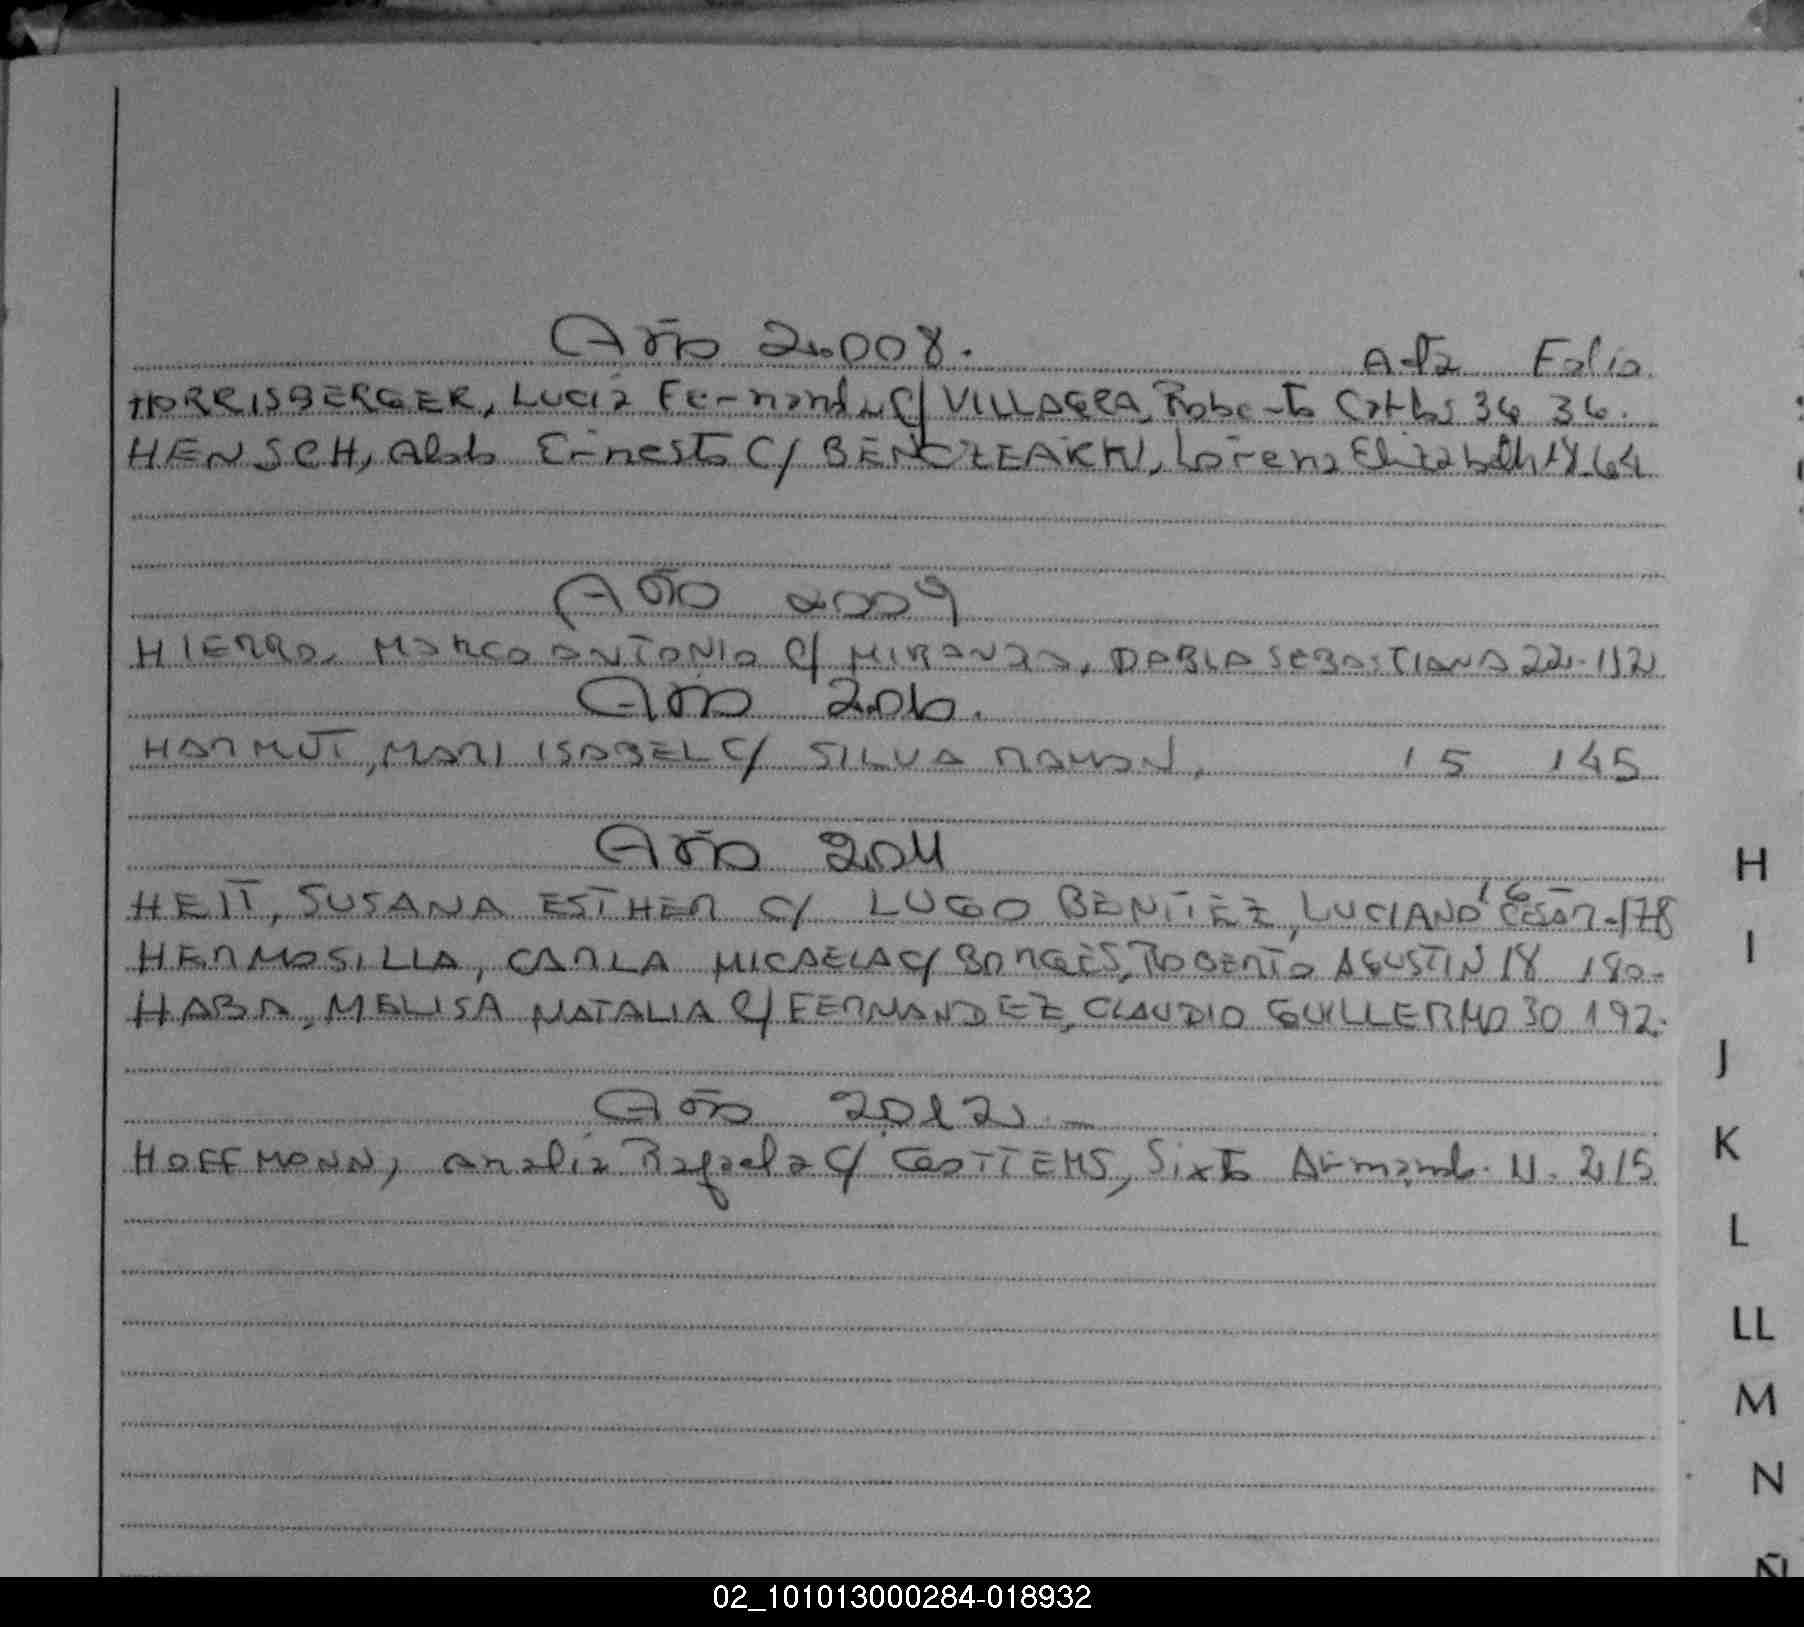 Año 2.008. Acta Folio.
HORRISBERGER, Lucia Fernanda c/ VILLAGRA, Roberto Carlos 34 34.
HENSCH, Aldo Ernesto C/ Lorena Elizabeth 18 64
Año 2009
HIERRO, MARCO ANTONIO c/ MIRANDA, SEBASTIANA 22 - 112
Año 2.010.
HARMUT, MARI ISABEL C/ SILVA RAMON, 15 145
Año 2.011
16 -
HEIT, SUSANA ESTHER c/ LUGO BENITEZ, LUCIANO CESAR - 178
HERMOSILLA, CARLA MICAELA c/ BORGES, ROBERTO AGUSTIN 18 180-
HABA, MELISA NATALIA c/ FERNANDEZ, CLAUDIO GUILLERMO 30 192.
Año 2.012 -
HOFFMANN, Analia Rafaela c/ Sixto Armando. 11. 215
H
I
J
K
L
LL
M
N
Ñ
02_101013000284-018932